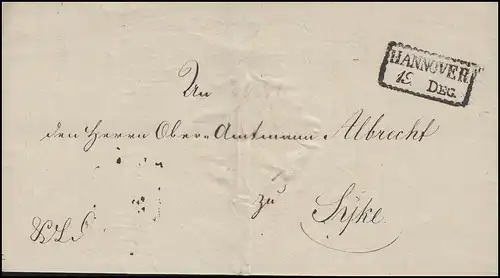 HANNOVER
19 DEC.
An
den Herrn Ober-Amtmann Albrecht
zu
Syke